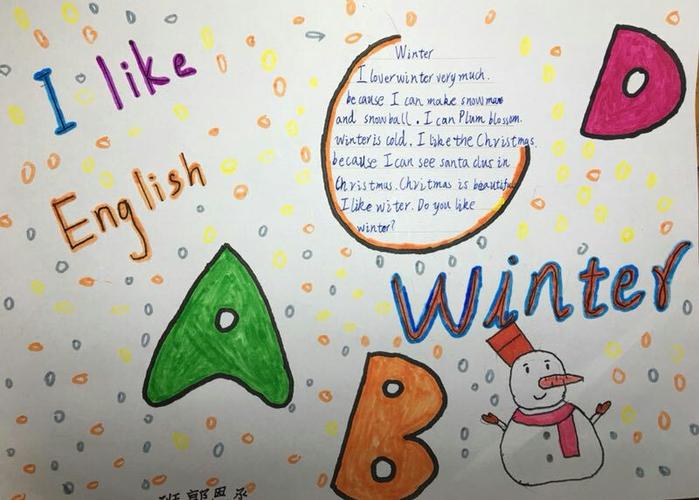 I like
English
Winter
I lover winter very much.
because I can make snow man
and snowball. I can Plum blossom.
winter is cold. I like the Christmas
because I can see santa clus in
Christmas. Chritmas is beautiful
I like witer. Do you like
winter?
D
Winter
A
B
班 郭思承